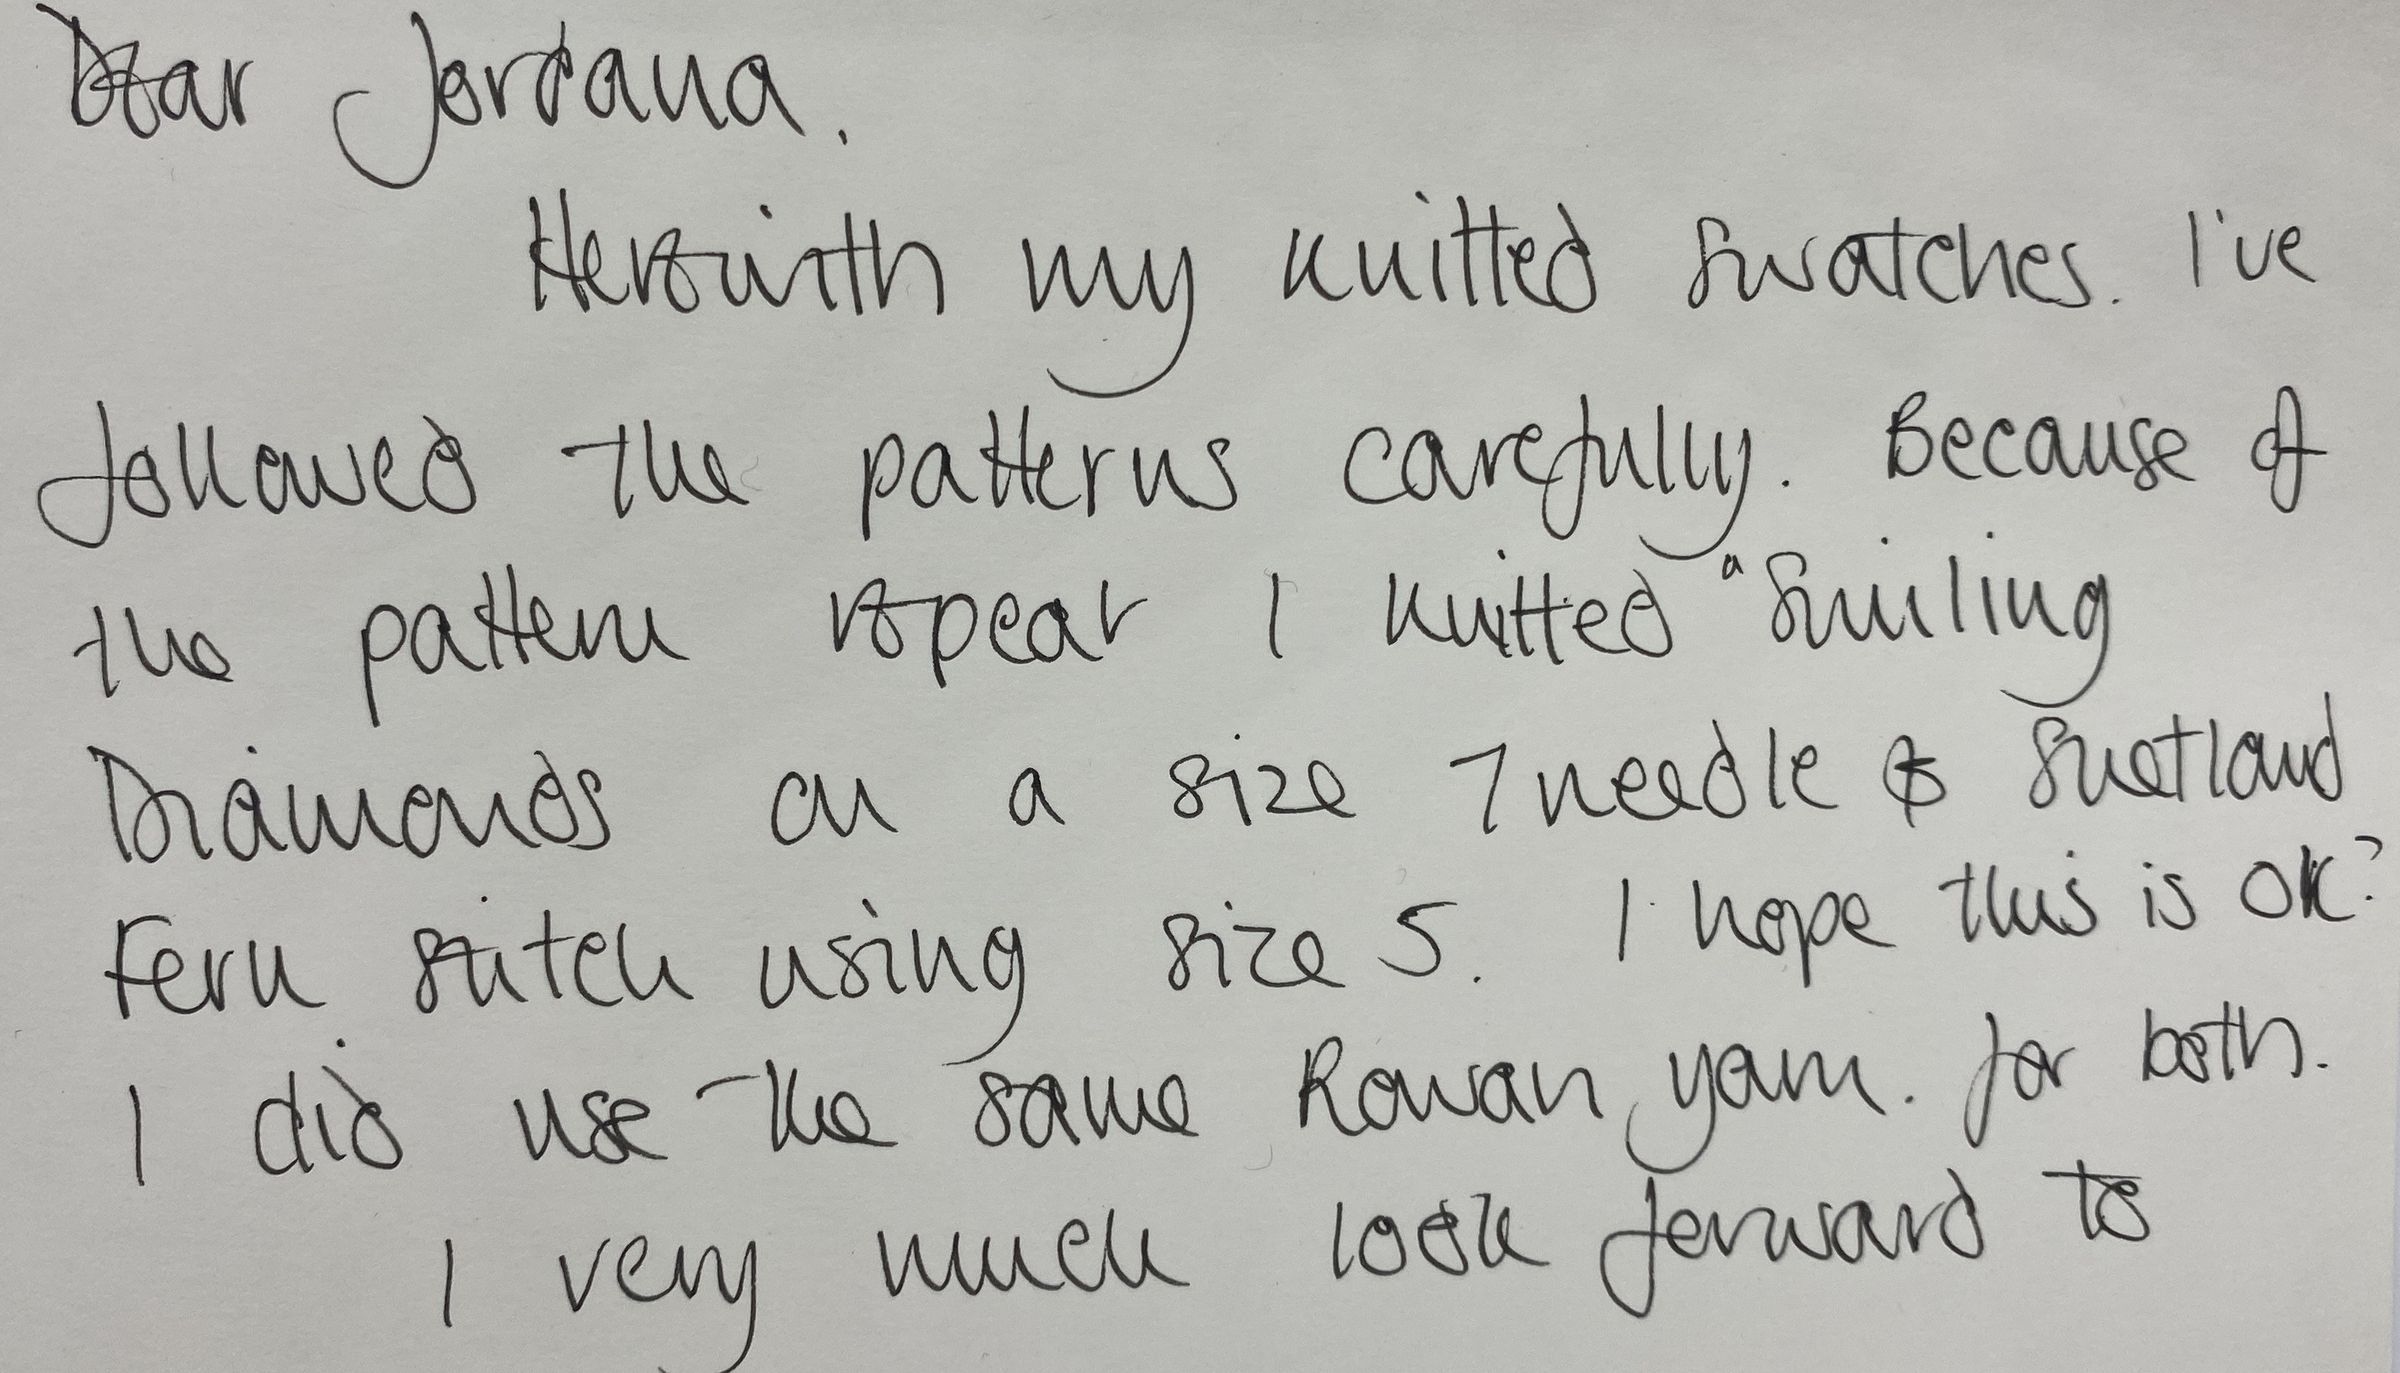 Dear Jordana,
Herewith my knitted swatches. I've
followed the patterns carefully. Because of
the pattern repeat I knitted "Smiling
Diamonds on a size 7 needle & Shetland
Fern stitch using size 5. I hope this is OK?
I did use the same Rowan yarn. for both.
I very much look forward to